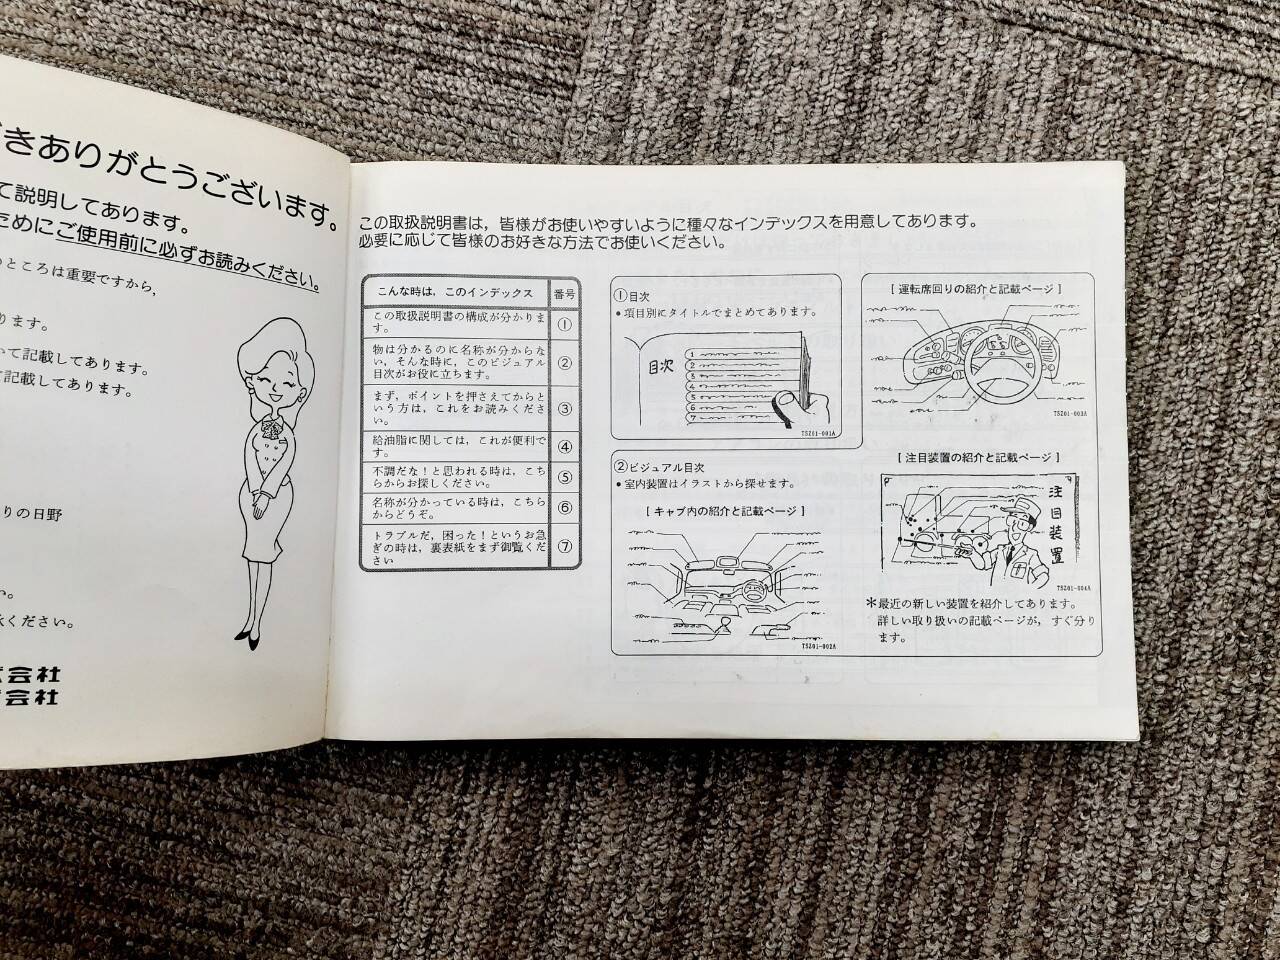 きありがとうございます。
て説明してあります。
ためにご使用前に必ずお読みください。
のところは重要ですから，
ります。
いて記載してあります。
て記載してあります。
りの日野
い。
ください。
会社
会社
この取扱説明書は，皆様がお使いやすいように種々なインデックスを用意してあります。
必要に応じて皆様のお好きな方法でお使いください。
こんな時は，このインデックス 番号
この取扱説明書の構成が分かりま
す。 ①
物は分かるのに名称が分からな
い，そんな時に，このビジュアル
目次がお役に立ちます。 ②
まず，ポイントを押さえてからと
いう方は，これをお読みくださ
い。 ③
給油脂に関しては，これが便利で
す。 ④
不調だな！と思われる時は，こち
らからお探しください。 ⑤
名称が分かっている時は，こちら
からどうぞ。 ⑥
トラブルだ，困った！というお急
ぎの時は，裏表紙をまず御覧くだ
さい ⑦
①目次
•項目別にタイトルでまとめてあります。
目次
1
2
3
4
5
6
7
TSZ01-001A
②ビジュアル目次
•室内装置はイラストから探せます。
［キャブ内の紹介と記載ページ］
TSZ01-002A
［運転席回りの紹介と記載ページ］
TSZ01-003A
［注目装置の紹介と記載ページ］
注目装置
TSZ01-004A
＊最近の新しい装置を紹介してあります。
詳しい取り扱いの記載ページが，すぐ分り
ます。